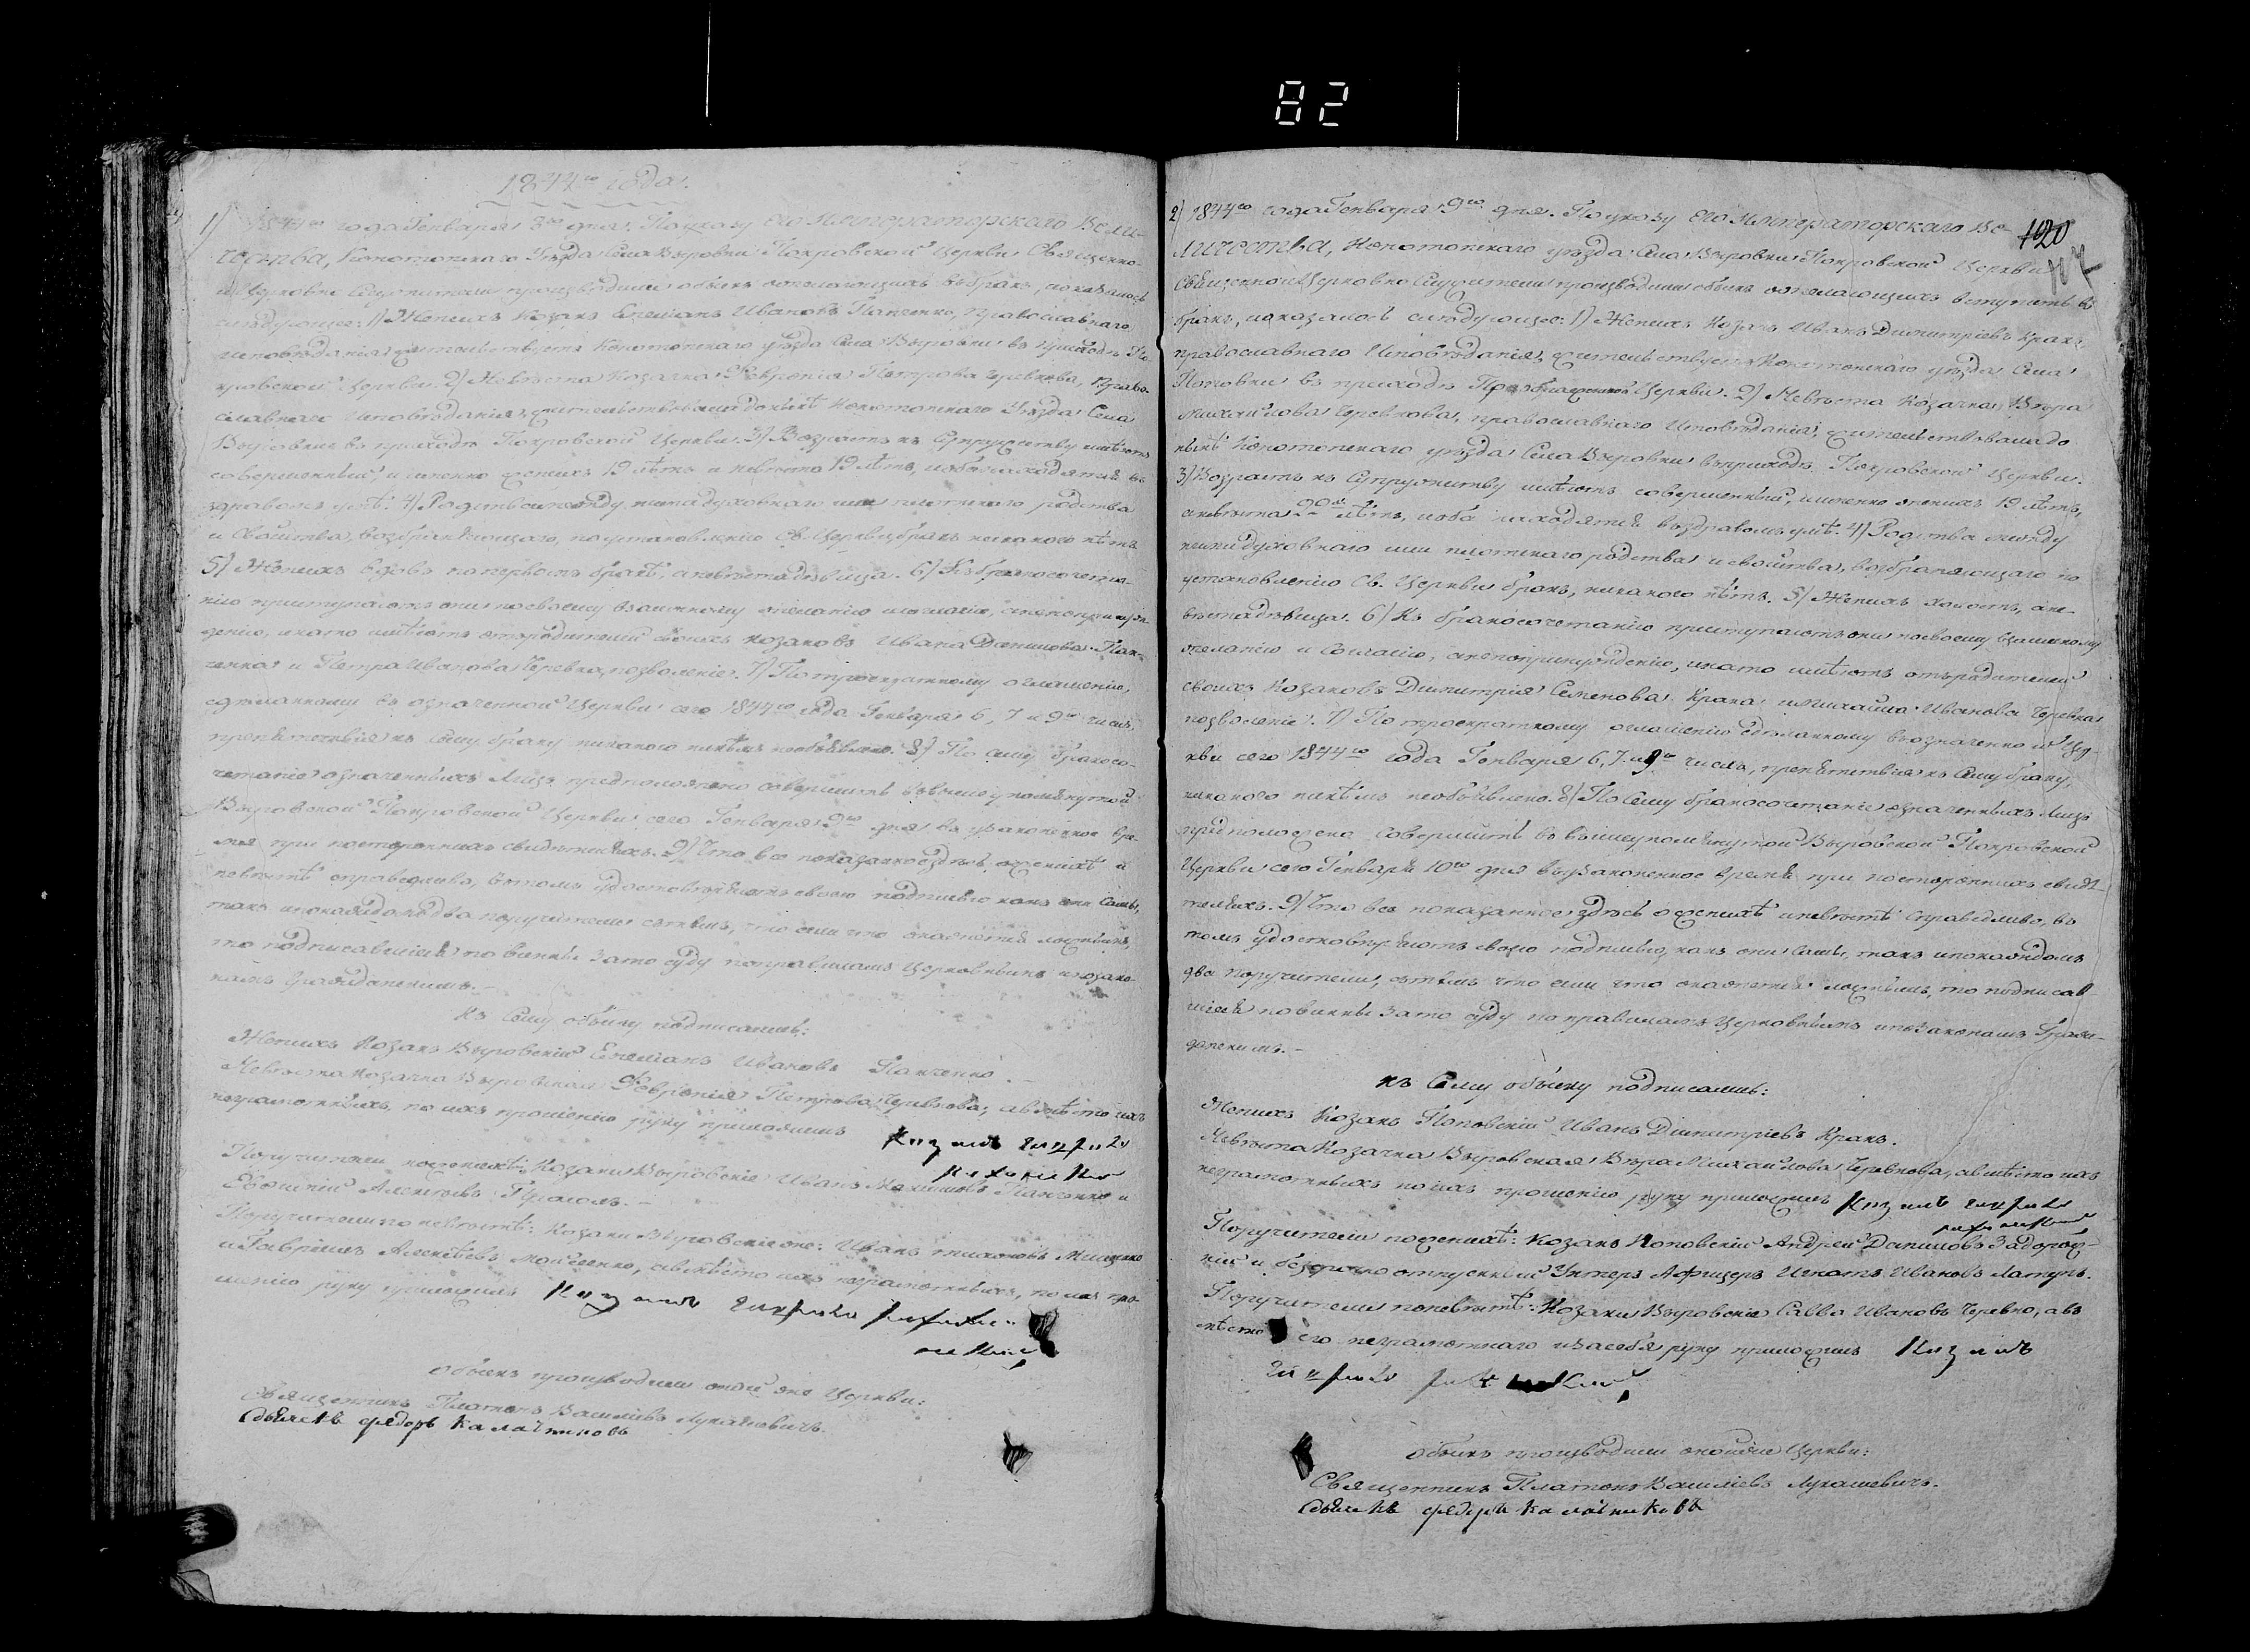 82
1844го года.
1) 1844го года Генваря 8го дня. По указу Его Императорскаго Вели-
чества, Конотопскаго уѣзда Села Выровки Покровской Церкви Священно
и Церковно Служители производили обыскъ о желающихъ въ бракъ, и оказалось
слѣдующее: 1) Женихъ Козакъ Емеліанъ Ивановъ Панченко, Православнаго
исповѣданія, жительствуетъ Конотопскаго уѣзда Села Выровки въ приходѣ По-
кровской Церкви. 2) Невѣста Козачка Февронія Петрова Черевкова, Право-
славнаго Исповѣданія, жительствовала донынѣ Конотопскаго уѣзда Села
Выровки въ приходѣ Покровской Церкви. 3) Возрастъ къ Супружеству имѣютъ
совершенный, и именно женихъ 19 лѣтъ и невѣста 19 лѣтъ, и оба находятся въ
здравомъ умѣ. 4) Родства между ними духовнаго или плотскаго родства
и Свойства, возбраняющаго, по установленію Св. Церкви, бракъ никакого нѣтъ.
5) Женихъ вдовъ по первомъ бракѣ, а невѣста дѣвица. 6) Къ бракосочета-
нію приступаютъ они по своему взаимному желанію и согласію, а не по принуж-
денію, и на то имѣютъ отъ родителей своихъ козаковъ Ивана Данилова Пан-
ченка и Петра Иванова Черевка, позволеніе. 7) По троекратному оглашенію,
сдѣланному въ означенной Церкви сего 1844го года Генваря 6, 7 и 9го числъ,
препятствія къ сему браку никакого никѣмъ необъявлено. 8) По сему бракосо-
четаніе означенныхъ лицъ предположено совершить въ вышеупомянутой
Выровской Покровской Церкви сего Генваря 9го дня въ узаконенное вре-
мя при постороннихъ свидѣтеляхъ. 9) Что все показанное здѣсь о женихѣ и
невѣстѣ справедливо, въ томъ удостовѣряютъ своею подписью какъ они сами,
такъ и по каждомъ два поручители съ тѣмъ, что если что окажется ложнымъ,
то подписавшіеся повинны за то суду по правиламъ Церковнымъ и по зако-
намъ Гражданскимъ.-
къ сему обыску подписались:
Женихъ Козакъ Выровскій Емеліанъ Ивановъ Панченко.-
Невѣста Козачка Выровская Февронія Петрова Черевкова, а вмѣсто ихъ
неграмотныхъ, по ихъ прошенію руку приложилъ
Поручители по женихѣ: Козаки Выровскіе Иванъ Панченко и
Алексѣевъ
Поручители по невѣстѣ: Козаки Выровскіе же: Иванъ Тихоновъ Мищенко
и Гавріилъ Алексѣевъ Мойсеенко, а вмѣсто ихъ неграмотныхъ, по ихъ про-
шенію руку приложилъ
Обыскъ производили оной же Церкви:
Священникъ Платонъ Васильевъ Лукашевичъ.
Дьячекъ Федоръ Калачниковъ
120
117
2) 1844го года Генваря 9го дня. По указу Его Императорскаго Ве-
личества, Конотопскаго уѣзда Села Выровки Покровской Церкви
Священно и Церковно Служители производили обыскъ о желающихъ вступить въ
бракъ, и оказалось слѣдующее: 1) Женихъ Козакъ Иванъ Димитріевъ Кракъ,
православнаго Исповѣданія, жительствуетъ Конотопскаго уѣзда Села
Поповки въ приходѣ Церкви. 2) Невѣста Козачка Вѣра
Михайлова Черевкова, православнаго Исповѣданія, жительствовала до
нынѣ Конотопскаго уѣзда Села Выровки въ приходѣ Покровской Церкви.
3) Возрастъ къ Супружеству имѣютъ совершенный, и именно женихъ 19 лѣтъ,
а невѣста 20 лѣтъ, и оба находятся въ здравомъ умѣ. 4) Родства между
ними духовнаго или плотскаго родства и свойства, возбраняющаго по
установленію Св. Церкви бракъ, никакого нѣтъ. 5) Женихъ холостъ, а не-
вѣста дѣвица. 6) Къ бракосочетанію приступаютъ они по своему взаимному
желанію и Согласію, а не по принужденію, и на то имѣютъ отъ родителей
своихъ Козаковъ Димитрія Семенова Крака и Михайла Иванова Черевка
позволеніе. 7) По троекратному оглашенію сдѣланному въ означенной Цер-
кви сего 1844го года Генваря 6, 7 и 9го числъ, препятствія къ сему браку,
никакого никѣмъ необъявлено. 8) По сему бракосочетаніе означенныхъ лицъ
предположено совершить въ вышеупомянутой Выровской Покровской
Церкви сего Генваря 10го дня въ узаконенное время при постороннихъ свидѣ-
теляхъ. 9) Что все показанное здѣсь о женихѣ и невѣстѣ справедливо, въ
томъ удостовѣряютъ своею подписью, какъ они сами, такъ и по каждомъ
два поручители, съ тѣмъ что если что окажется ложнымъ, то подписав-
шіеся повинны за то суду по правиламъ Церковнымъ и по законамъ Граж-
данскимъ.-
къ Сему обыску подписались:
Женихъ Козакъ Поповскій Иванъ Димитріевъ Кракъ.
Невѣста Козачка Выровская Вѣра Михайлова Черевкова, а вмѣсто ихъ
неграмотныхъ по ихъ прошенію руку приложилъ
Поручители по женихѣ: Козакъ Поповскій Андрей Даниловъ Задорож-
ній и безсрочно отпускный Унтеръ Афицеръ Игнатъ Ивановъ
Поручители по невѣстѣ: Козаки Выровскіе Савва Ивановъ Черевко, а вм-
ѣсто его неграмотнаго и за себя руку приложилъ
Обыскъ производили оной же Церкви:
Священникъ Платонъ Васильевъ Лукашевичъ.
Дьячекъ Федоръ Калачниковъ